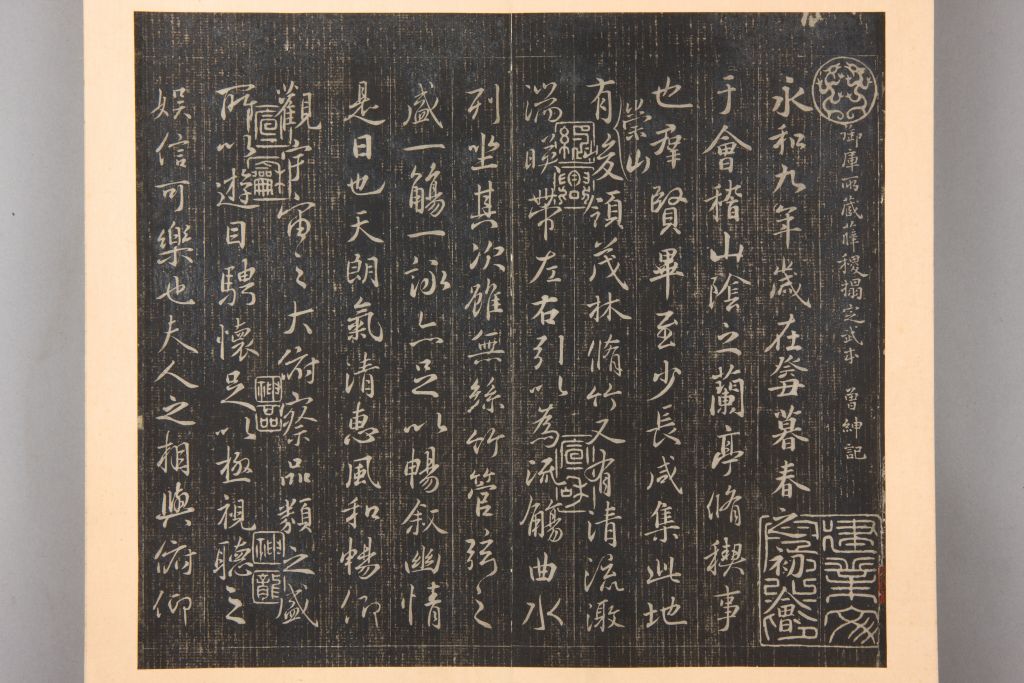 御庫所藏薛稷搨定武本 曾紳記
永和九年歲在癸丑暮春之初
于會稽山陰之蘭亭脩稧事
也羣賢畢至少長咸集此地
崇山
有峻領茂林脩竹又有清流激
湍暎帶左右引以為流觴曲水
列坐其次雖無絲竹管弦之
盛一觴一詠亦足以暢叙幽情
是日也天朗氣清惠風和暢仰
觀宇宙之大俯察品類之盛
所以遊目騁懷足以極視聽之
娛信可樂也夫人之相與俯仰
紹興
宣和
神品
神龍